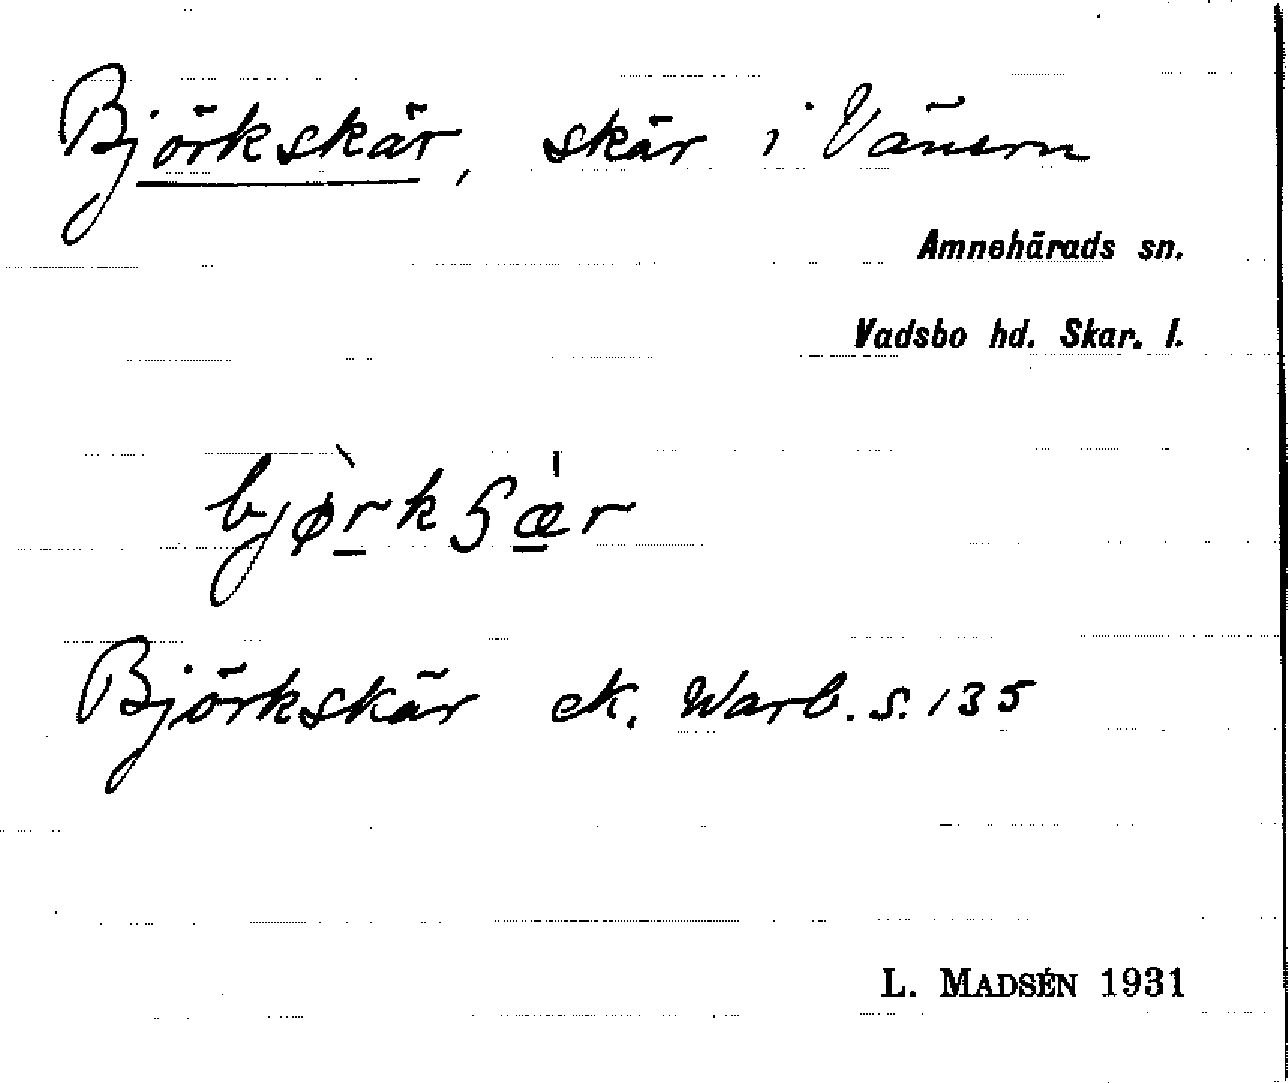 Björkskär, skär i Vänern
Amnehärads sn.
Vadsbo hd. Skar. l.
bjørkʃæ̠r
Björkskär ek. Warb. s. 135
L. MADSÉN 1931